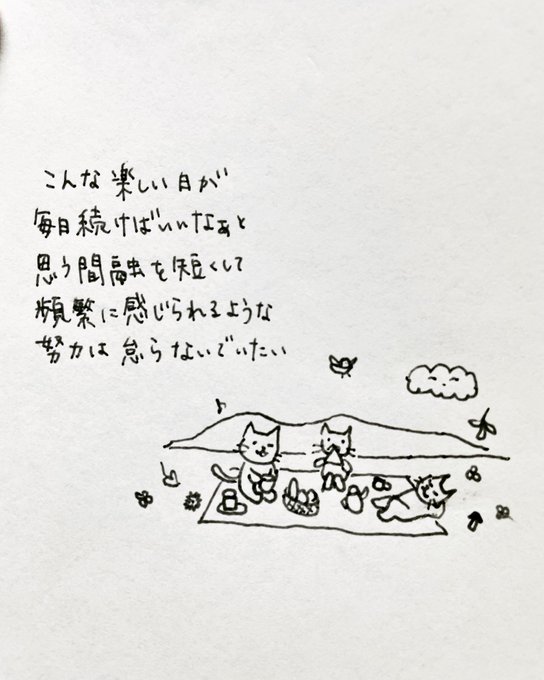 こんな楽しい日が
毎日続けばいいなぁと
思う間融を短くして
頻繁に感じられるような
努力は怠らないでいたい